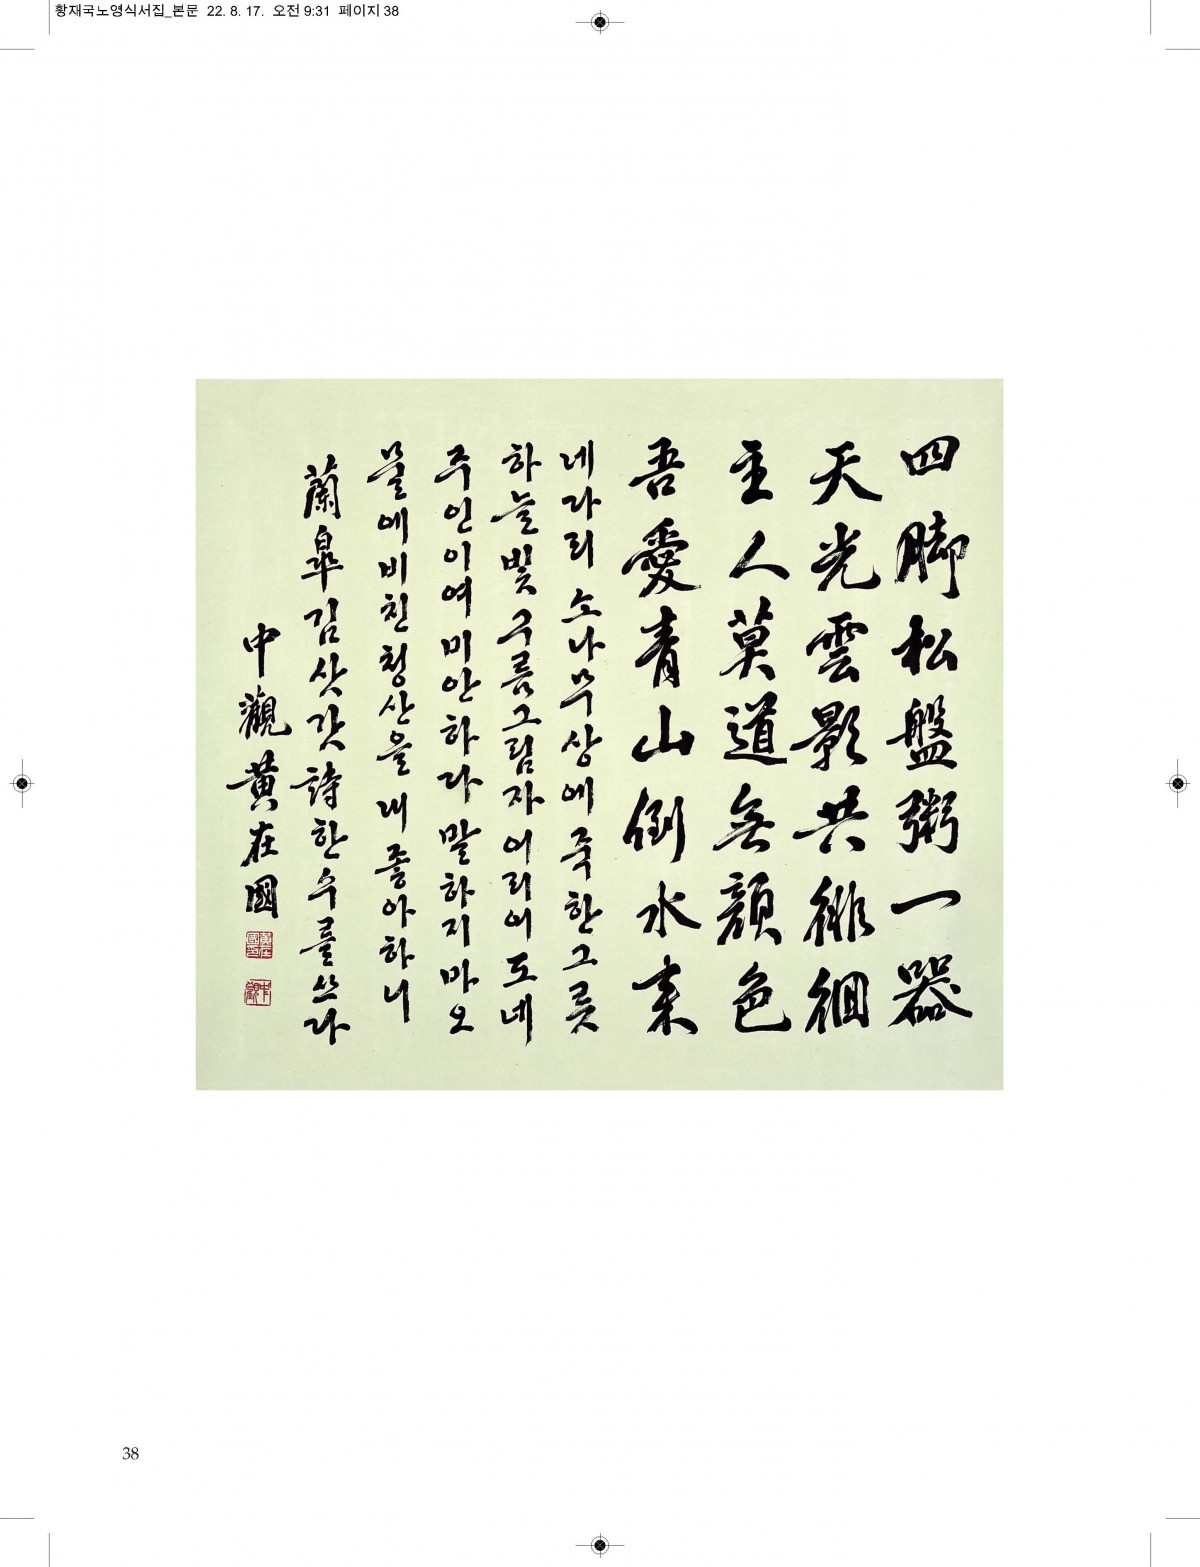 황재국노영식서집_본문 22. 8. 17. 오전 9:31 페이지 38
四脚松盤粥一器
天光雲影共徘徊
主人莫道無顔色
吾愛青山倒水來
네 다리 소나무 상에 죽 한 그릇
하늘빛 구름 그림자 어리어 도네
주인이여 미안하다 말하지 마오
물에 비친 청산을 내 좋아하니
蘭皐 김삿갓 詩 한 수를 쓰다
中觀 黄在國
38